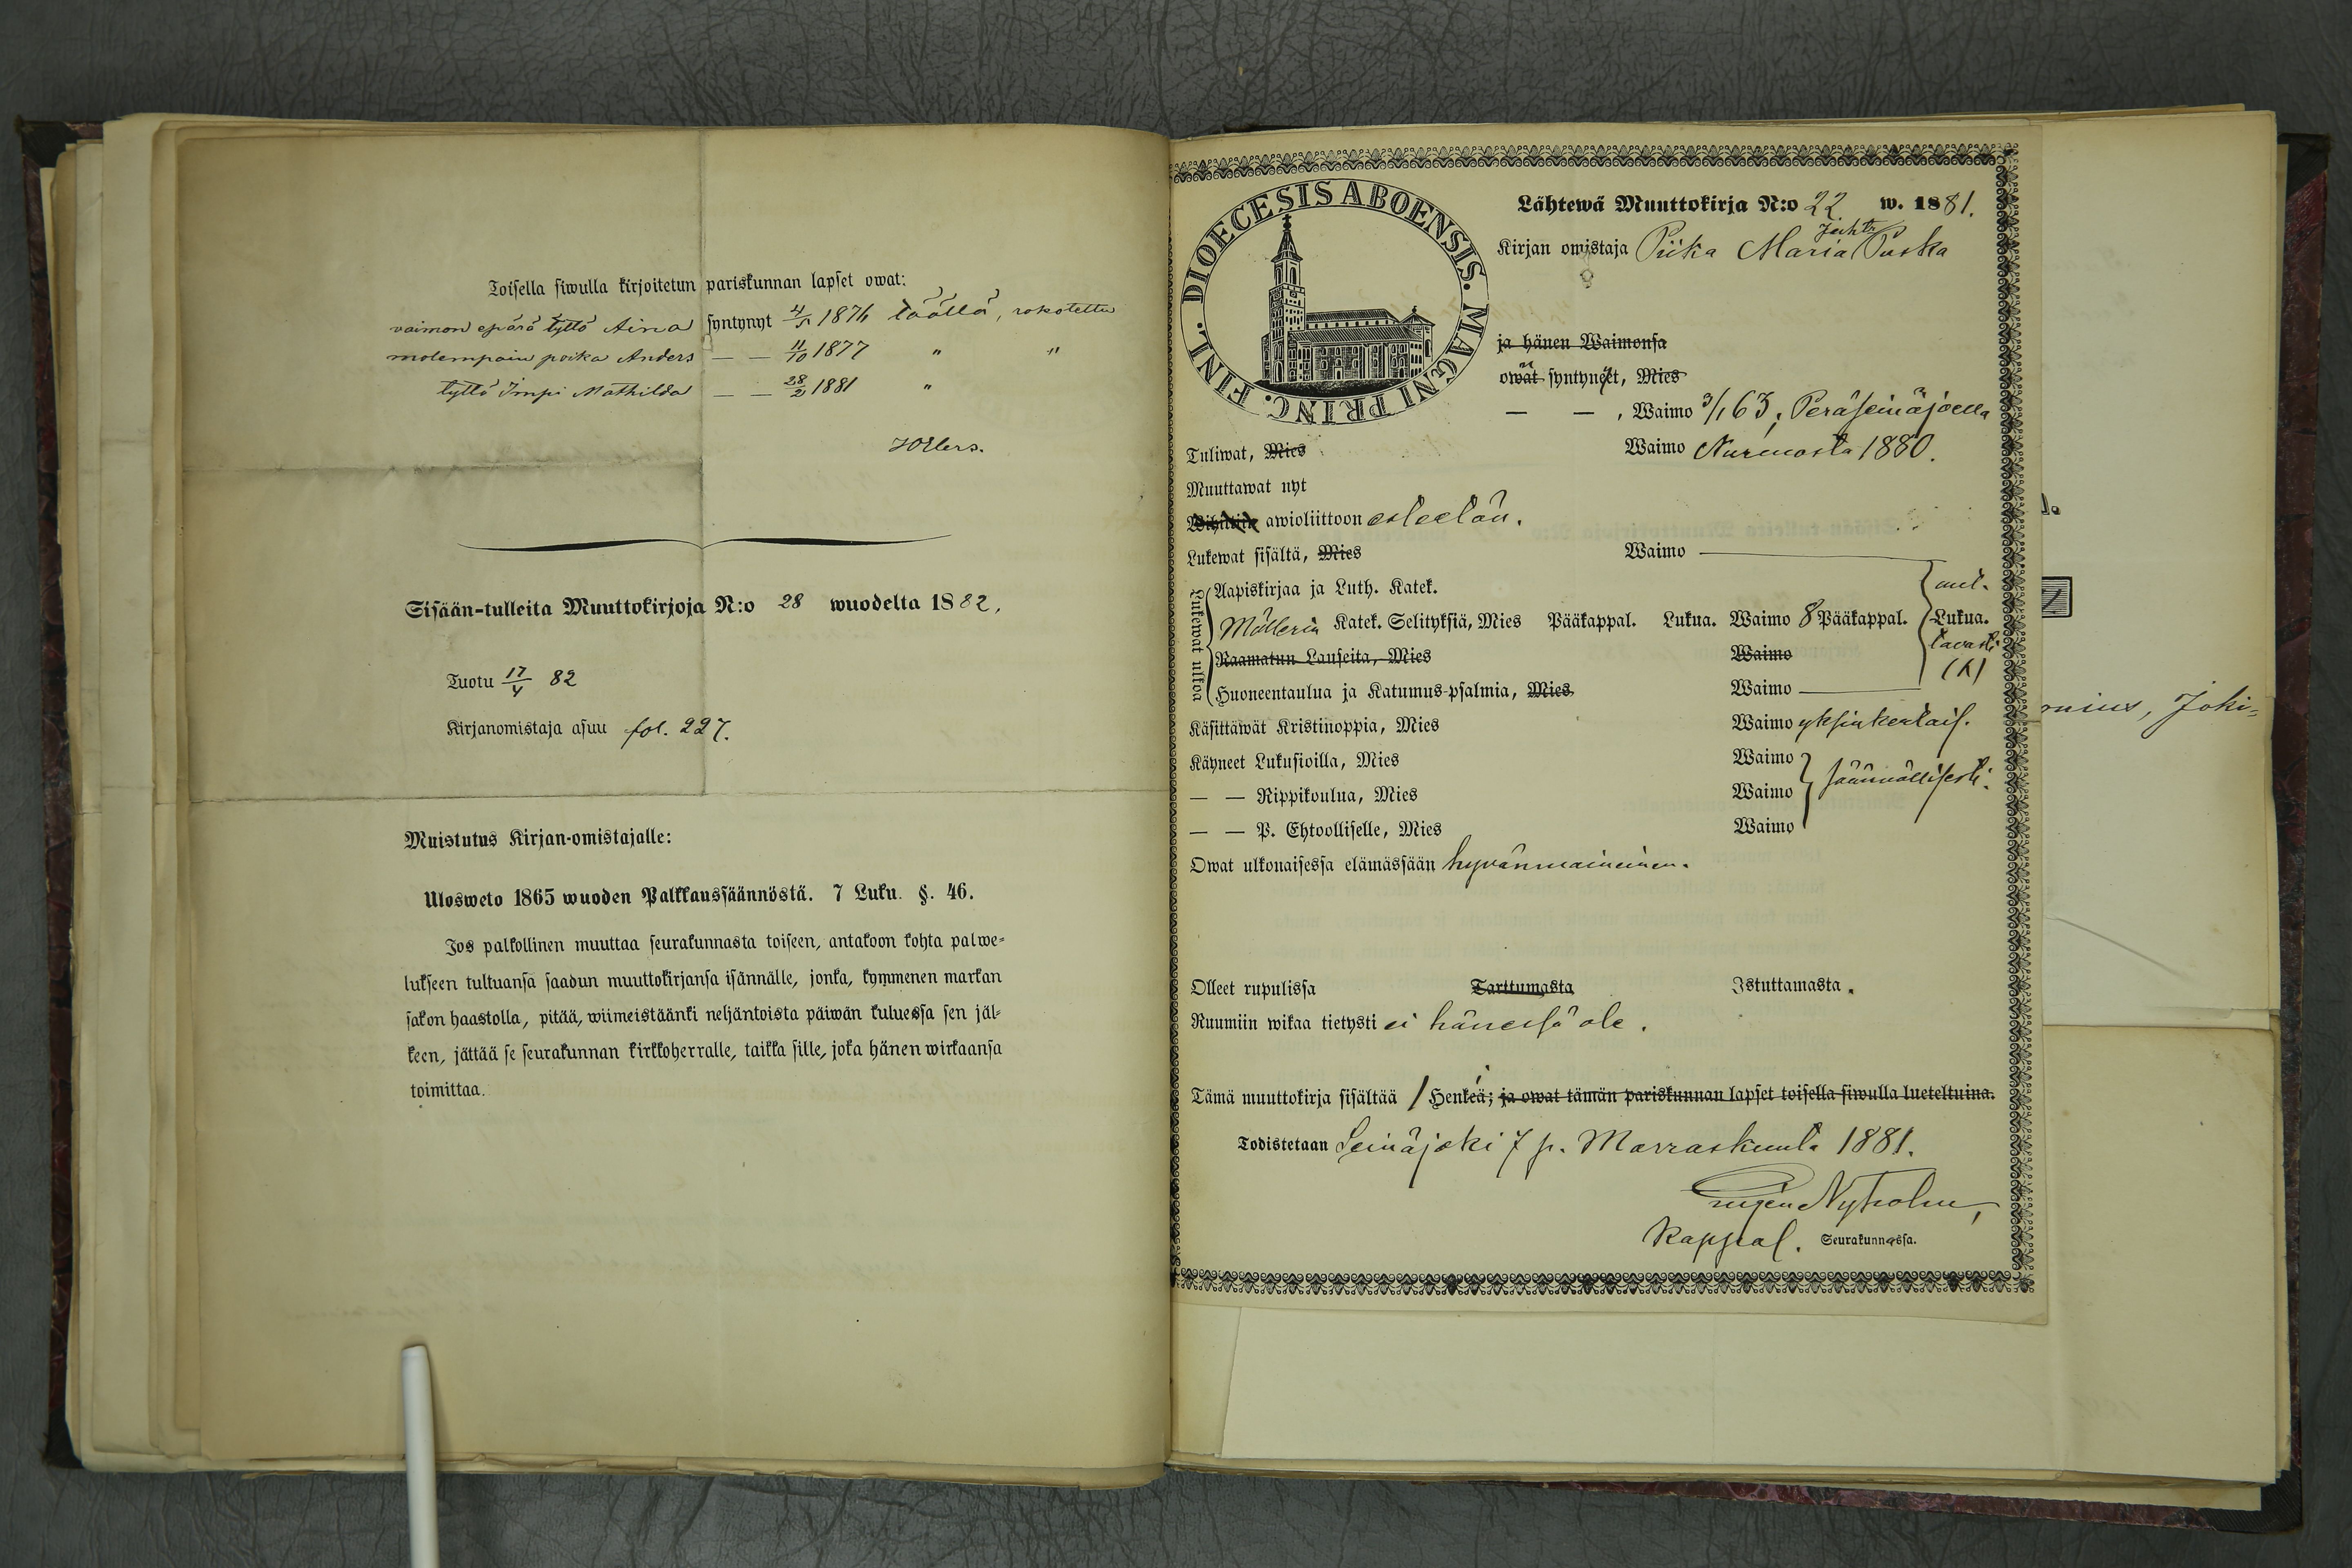 Toisella siwulla kirjoitetun pariskunnan lapset owat:
vaimon epärä tyttö Aina syntynyt 4/5 1876 täällä, rokotettu
molempain poika Anders — — 11/10 1877 " "
tyttö Impi Mathilda — — 28/2 1881 "
Sisään-tulleita Muuttokirjoja N:o 28 wuodelta 1882.
Tuotu 17/4 82
Kirjanomistaja asuu fol. 227.
Muistutus Kirjan-omistajalle:
Ulosweto 1865 wuoden Palkkaussäännöstä. 7 Luku. §. 46.
Jos palkollinen muuttaa seurakunnasta toiseen, antakoon kohta palwe-
lukseen tultuansa saadun muuttokirjansa isännälle, jonka, kymmenen markan
sakon haastolla, pitää, wiimeistäänki neljäntoista päiwän kuluessa sen jäl-
keen, jättää se seurakunnan kirkkoherralle, taikka sille, joka hänen wirkaansa
toimittaa.
DIOECESIS ABOENSIS. MAGNI PRINC. FINL.
Lähtewä Muuttokirja N:o 22 w. 1881.
Kirjan omistaja Piika Maria Puska
ja hänen Waimonsa
owat syntynyt, Mies
— — , Waimo 3/1 63, Peräseinäjoella
Tuliwat, Mies Waimo Nurmosta 1880.
Muuttawat nyt
awioliittoon esteetön.
Lukewat sisältä, Mies Waimo
Lukewat ulkoa
Aapiskirjaa ja Luth. Katek.
Möllerin Katek. Selityksiä, Mies Pääkappal. Lukua. Waimo 8 Pääkappal. Lukua.
Raamatun Lauseita, Mies Waimo
Huoneentaulua ja Katumus-psalmia, Mies Waimo
Käsittäwät Kristinoppia, Mies Waimo yksinkertais.
Käyneet Lukusioilla, Mies Waimo
— — Rippikoulua, Mies Waimo säännöllisesti.
— — P. Ehtoolliselle, Mies Waimo
Owat ulkonaisessa elämässään hyvänmaineinen.
Olleet rupulissa Tarttumasta Istuttamasta.
Ruumiin wikaa tietysti ei hänessä ole.
Tämä muuttokirja sisältää 1 Henkeä; ja owat tämän pariskunnan lapset toisella siwulla lueteltuina.
Todistetaan Seinäjoki 7 p. Marraskuuta 1881.
Eugen Nyholm,
Kappal. Seurakunnassa.
onius, Joki-